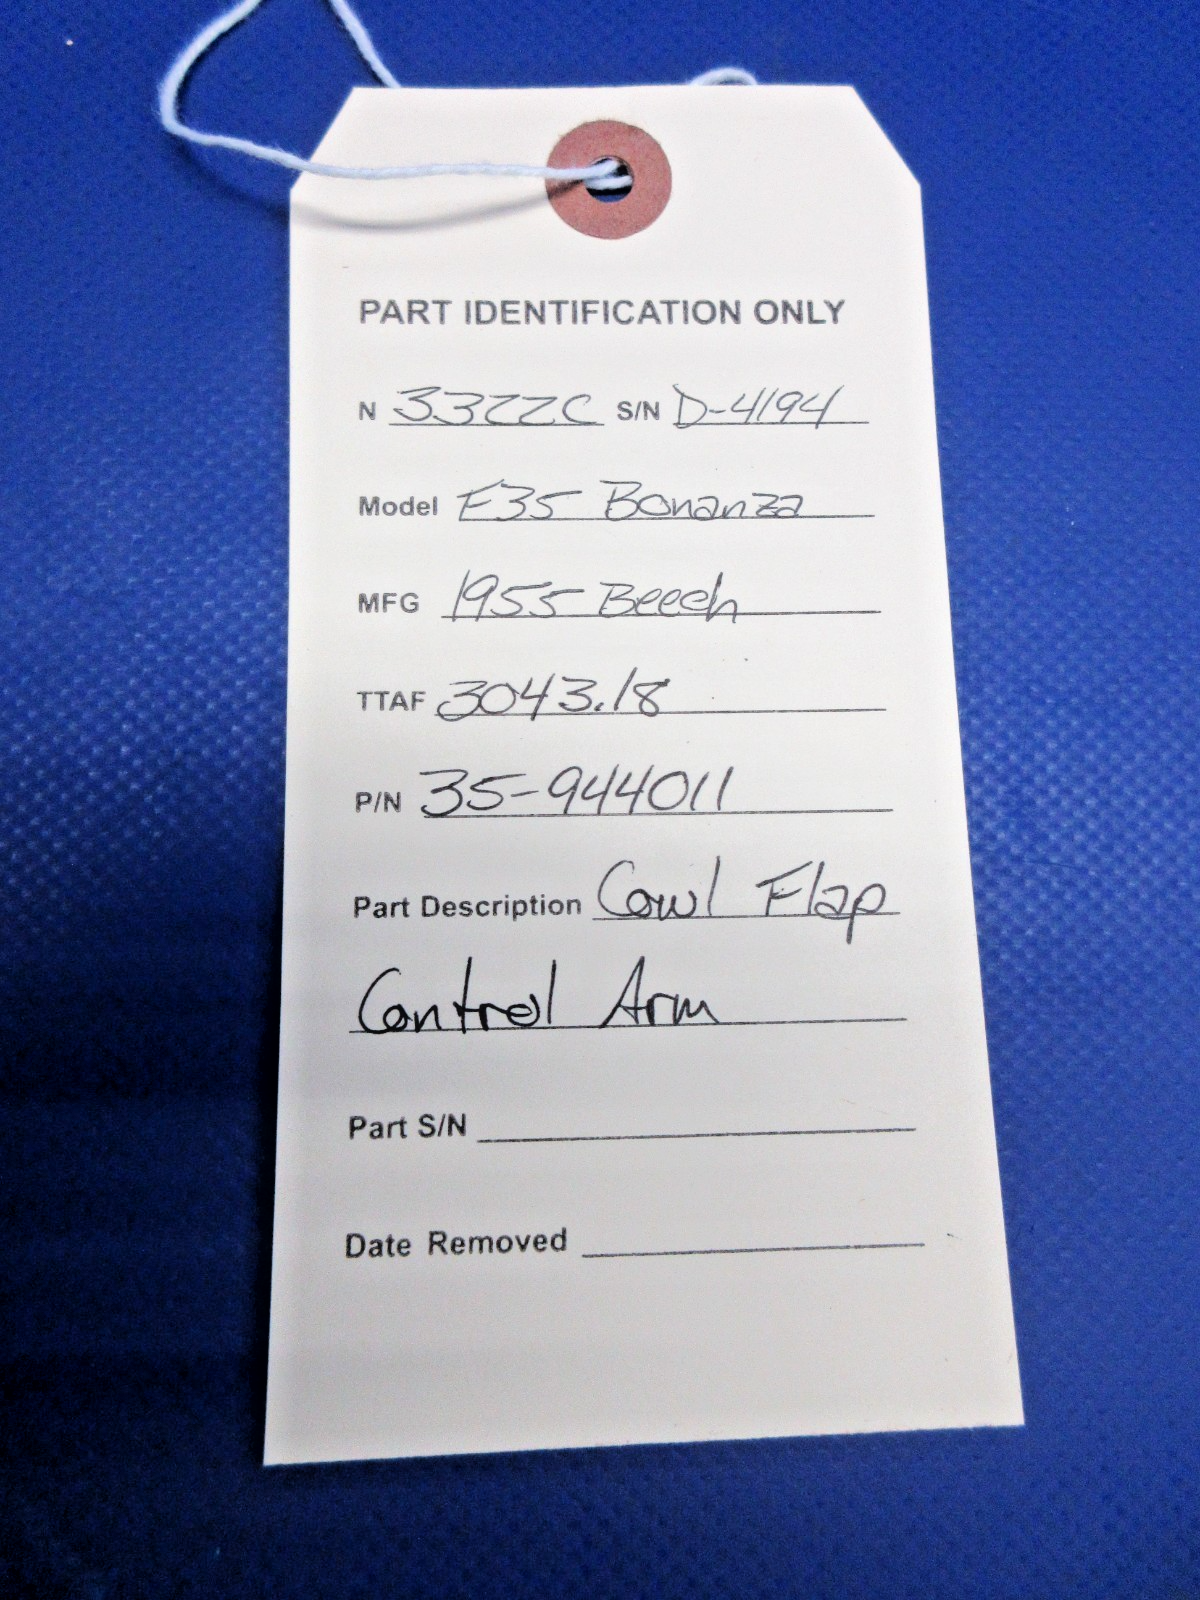 PART IDENTIFICATION ONLY
N 3322C S/N D-4194
Model F35 Bonanza
MFG 1955 Beech
TTAF 3043.18
P/N 35-944011
Part Description Cowl Flap
Control Arm
Part S/N
Date Removed